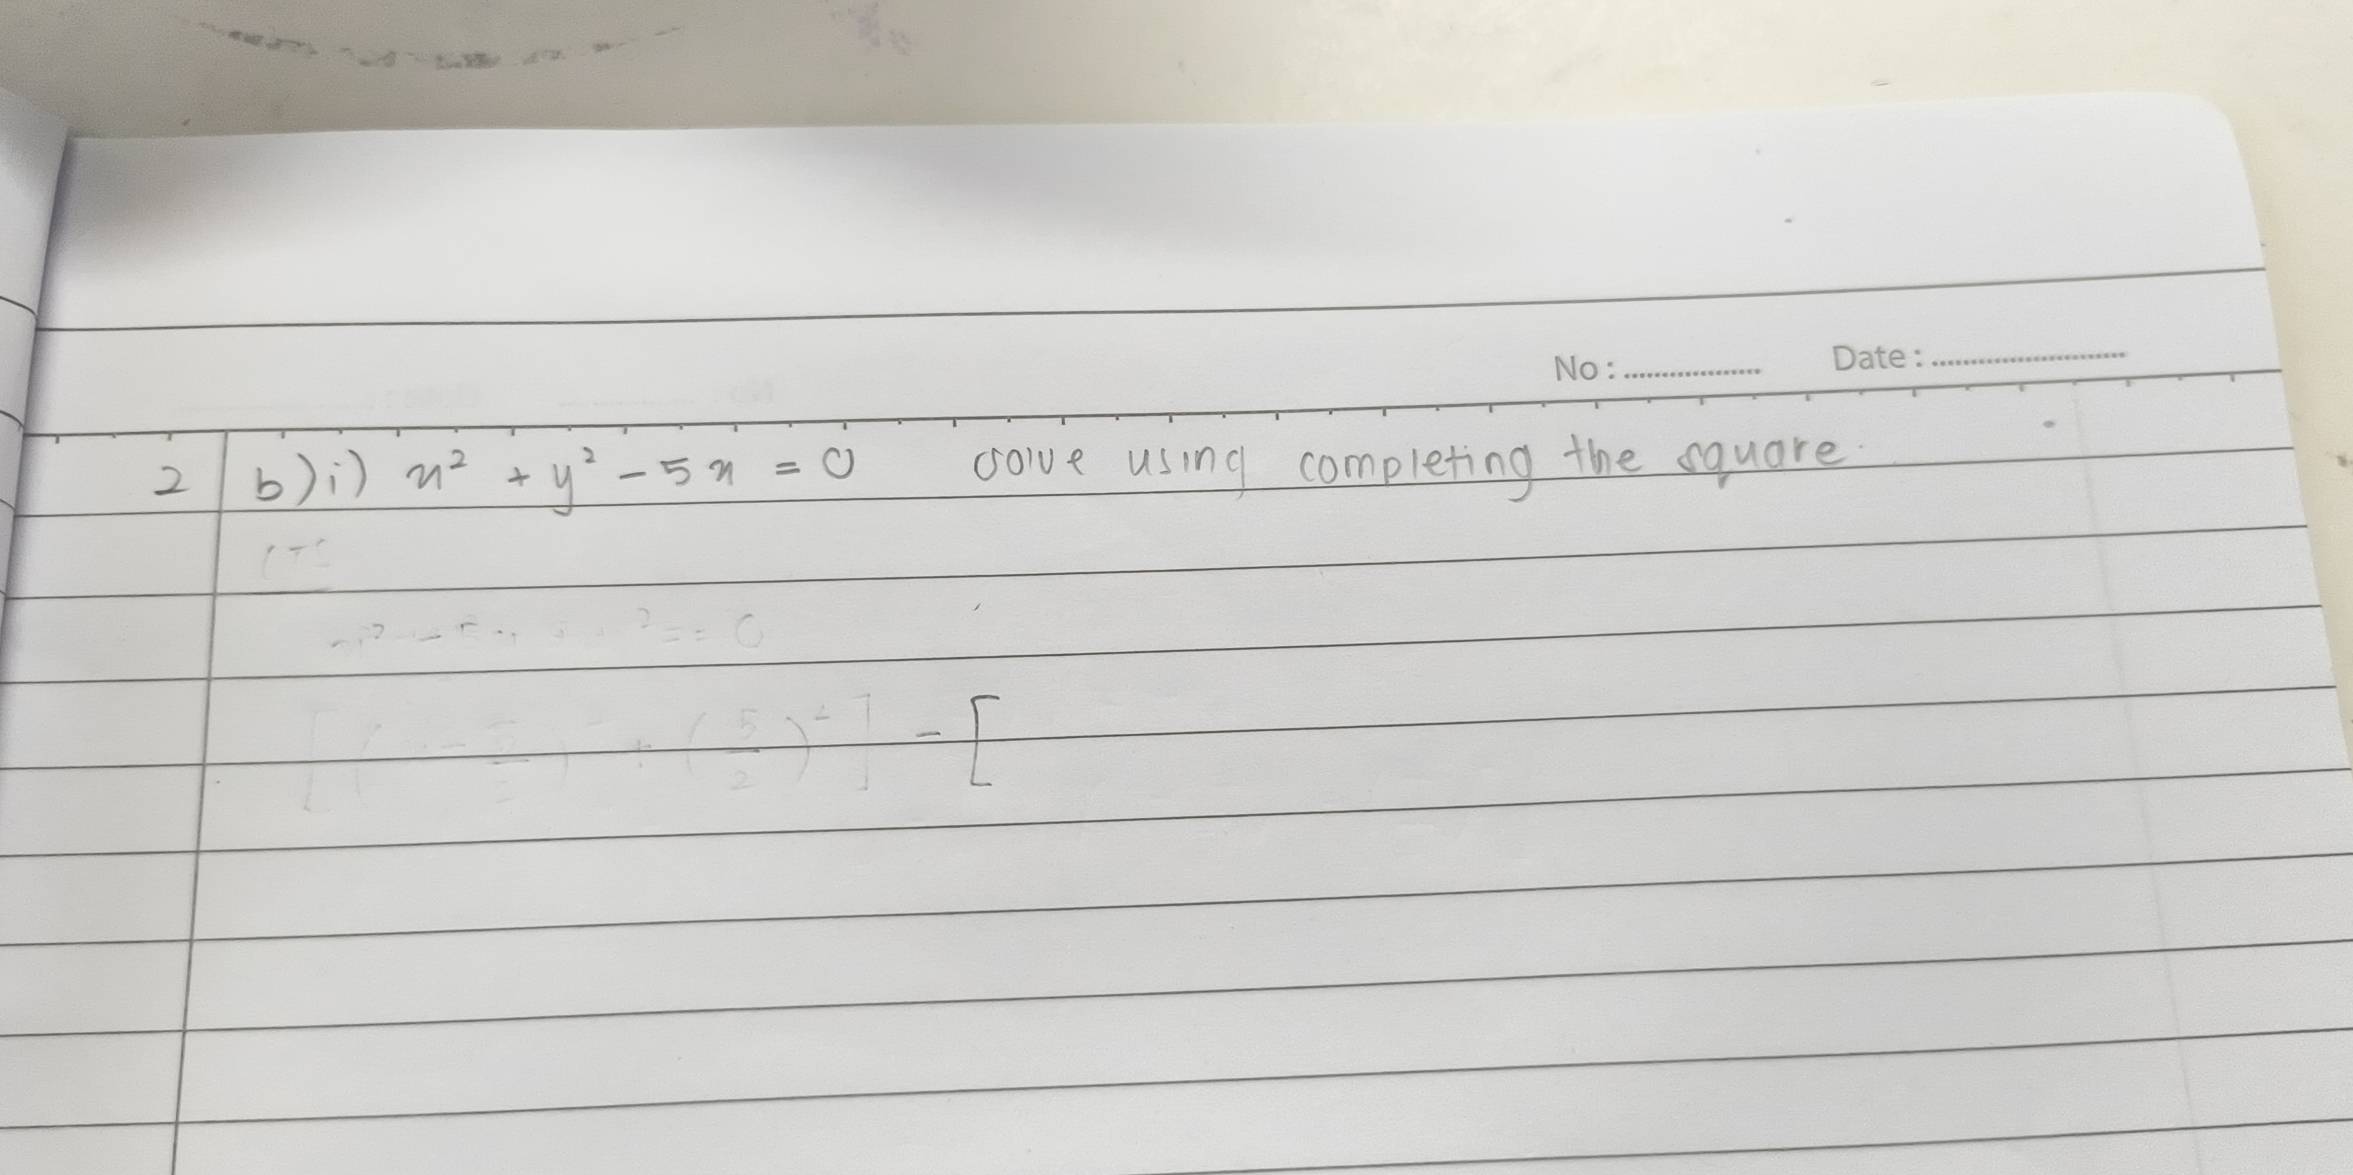 No : .................. Date : ..........................
2 b) i) x² + y² - 5x = 0 solve using completing the square.
² - 5 ² = = 0
[( - 5/2 ) + (5/2)² ] - [